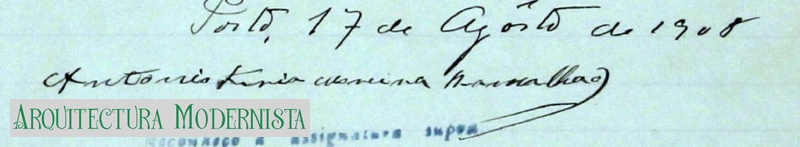 Porto, 17 de Agôsto de 1908
Antonio Faria Moreira Ramalhão
ARQUITECTURA MODERNISTA
Reconheço a assignatura supra